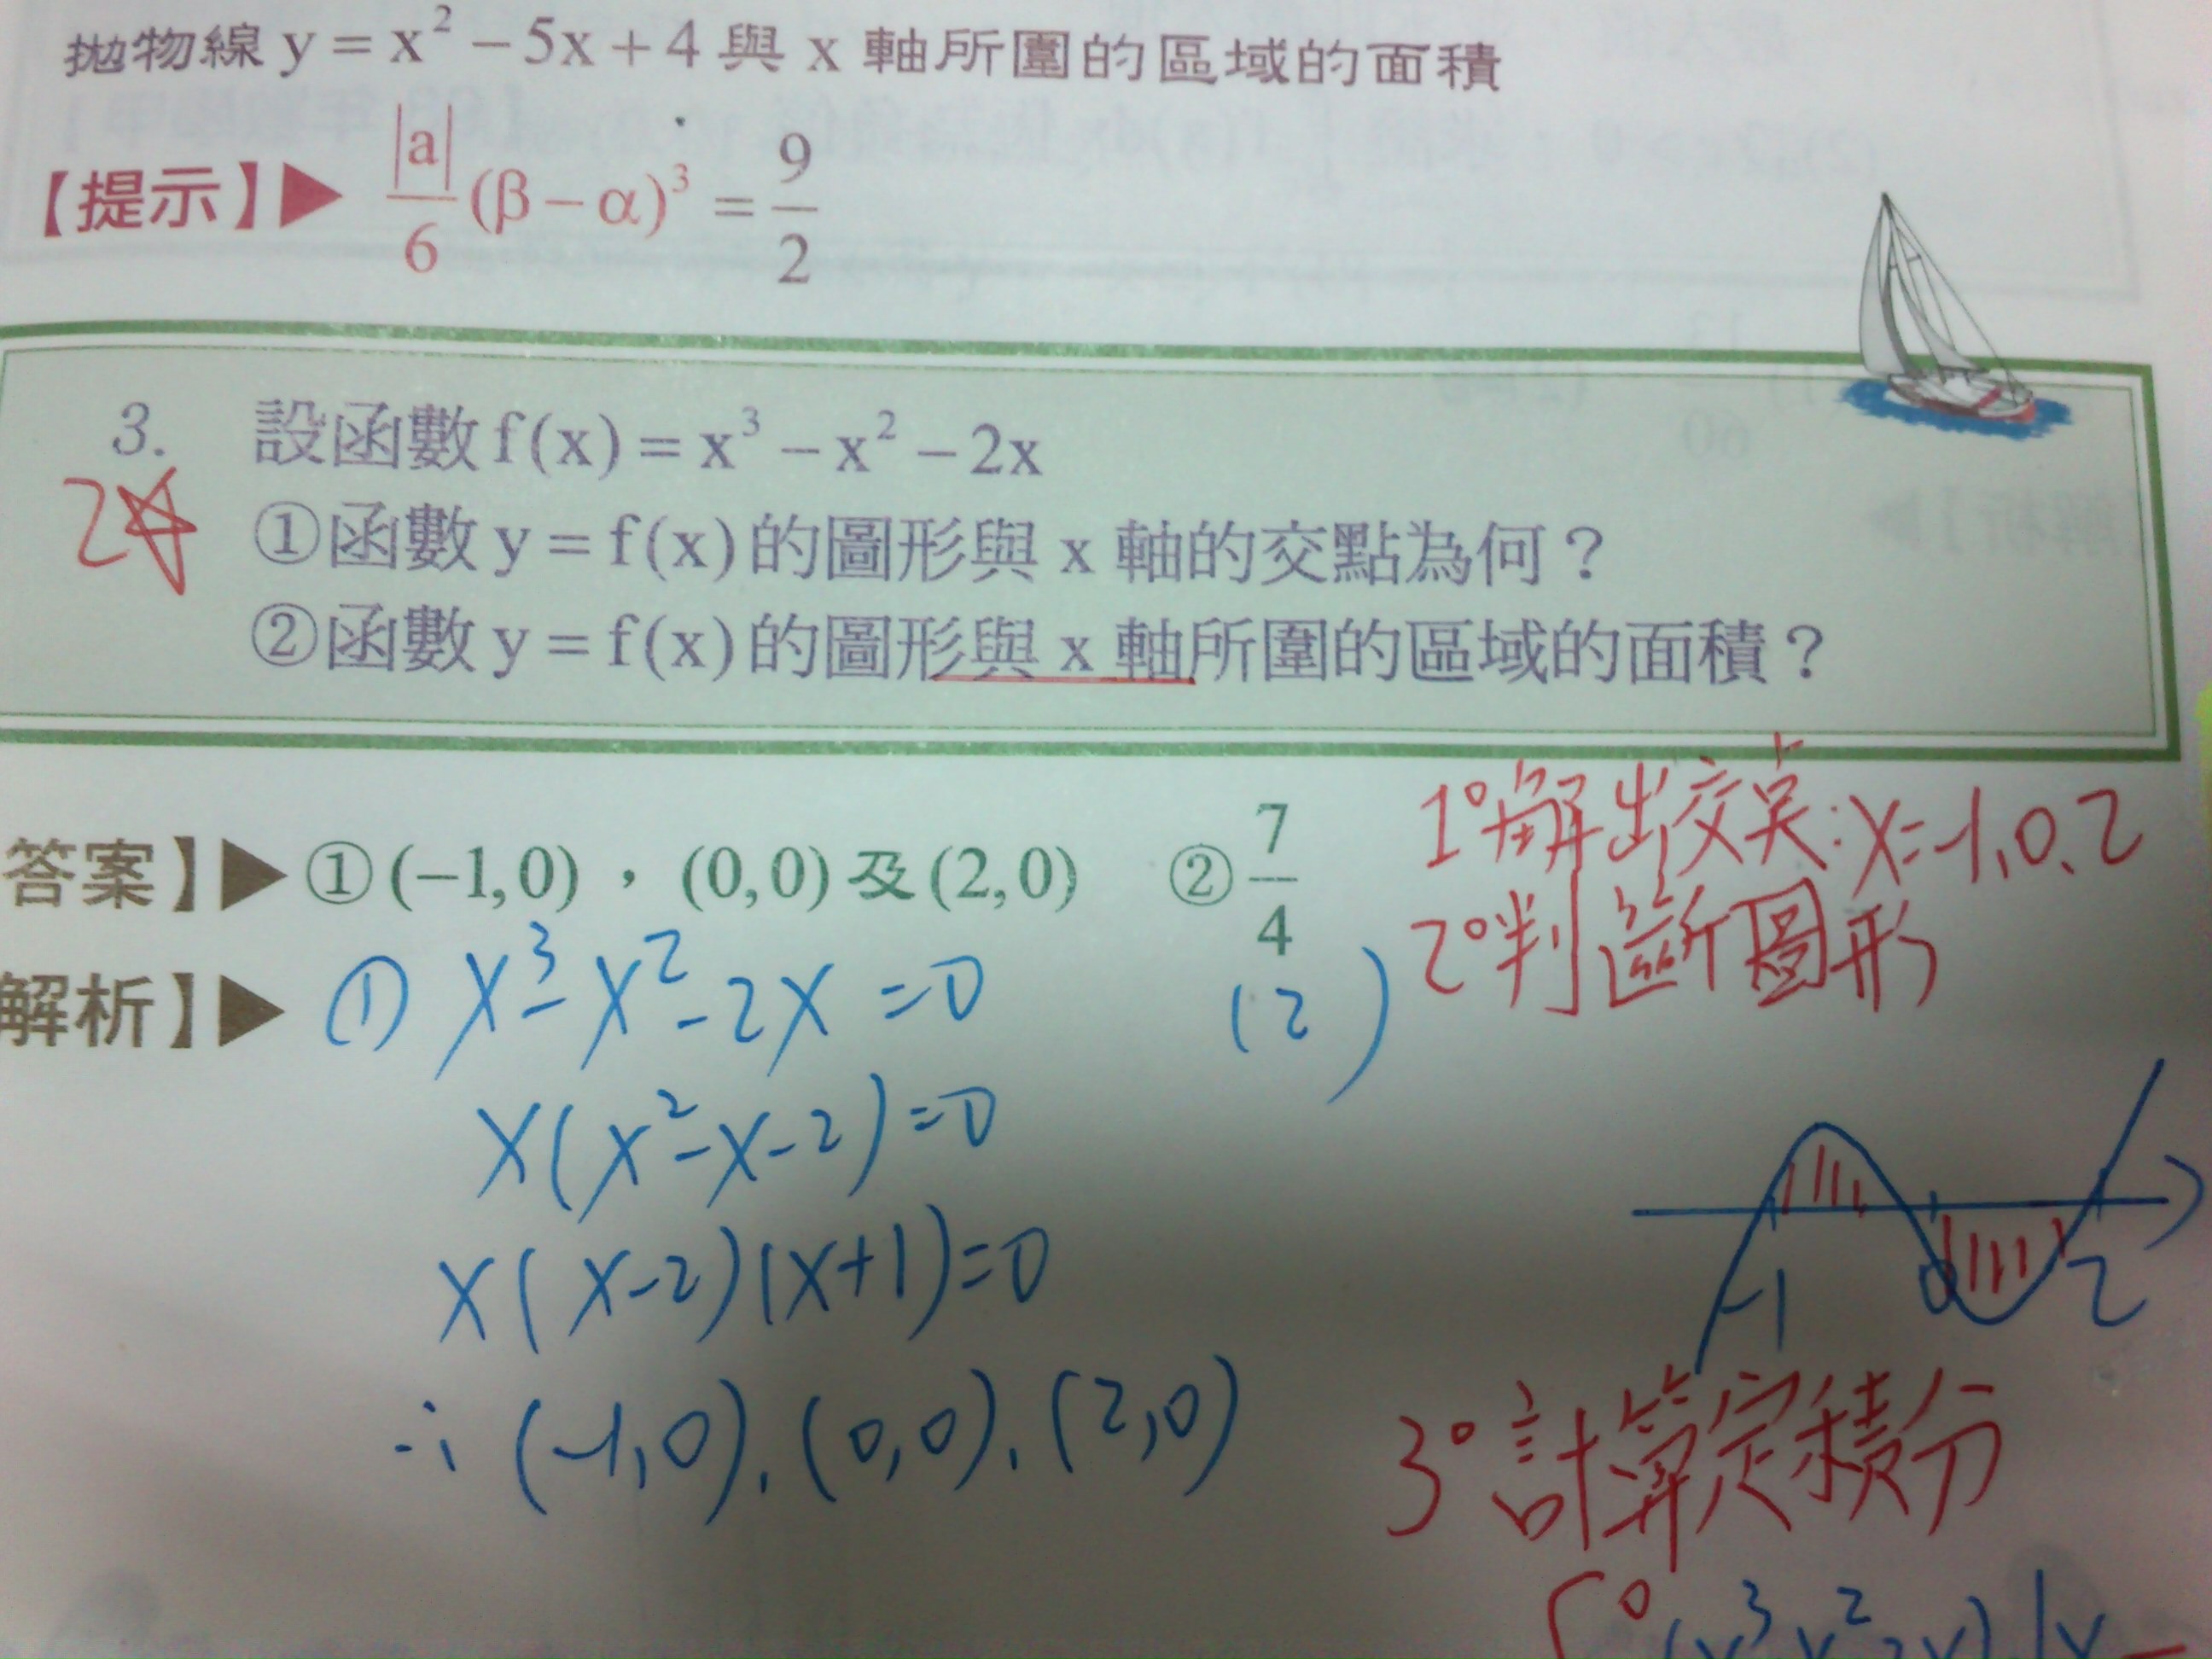 拋物線 y = x² − 5x + 4 與 x 軸所圍的區域的面積
【提示】▶ |a|/6 (β − α)³ = 9/2
3. 設函數 f(x) = x³ − x² − 2x
2☆ ①函數 y = f(x) 的圖形與 x 軸的交點為何？
②函數 y = f(x) 的圖形與 x 軸所圍的區域的面積？
答案】▶ ①(−1,0)，(0,0) 及 (2,0) ② 7/4
1° 解出交点: x=-1, 0, 2
2° 判斷圖形
解析】▶ ① x³ - x² - 2x = 0
(2)
x(x² - x - 2) = 0
x(x-2)(x+1) = 0
-1 0 2
∴ (-1,0), (0,0), (2,0)
3° 計算定積分